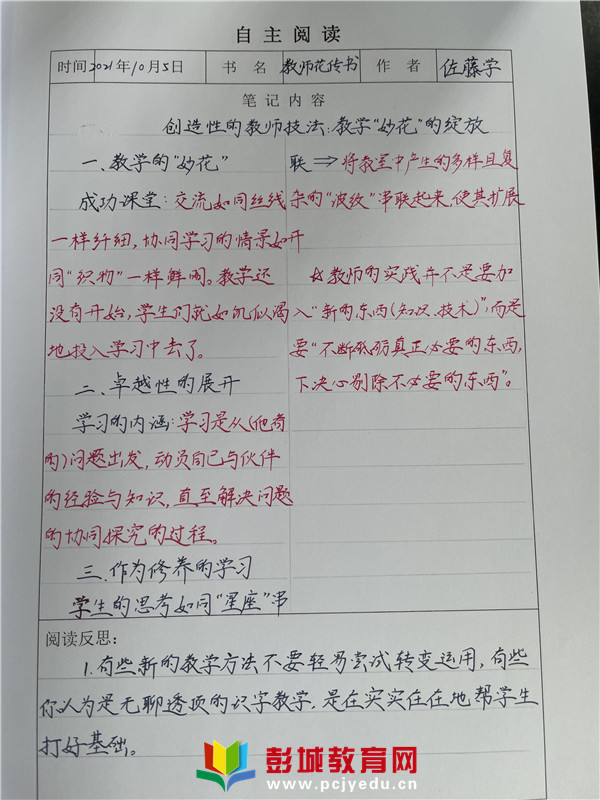 自主阅读
时间 2021年10月5日 书名 教师花传书 作者 佐藤学
笔记内容
创造性的教师技法:教学“妙花”的绽放
一、教学的“妙花”
成功课堂:交流如同丝线
一样纤细,协同学习的情景如开
同“织物”一样鲜阔。教学还
没有开始,学生们就如饥似渴
地投入学习中去了。
二、卓越性的展开
学习的内涵:学习是从(他者
的)问题出发,动员自己与伙伴
的经验与知识,直至解决问题
的协同探究的过程。
三.作为修养的学习
学生的思考如同“星座”串
联⇒将教室中产生的多样且复
杂的“波纹”串联起来,使其扩展
☆教师的实践并不是要加
入“新的东西(知识、技术)”,而是
要“不断砥砺真正必要的东西,
下决心剔除不必要的东西”。
阅读反思:
1.有些新的教学方法不要轻易尝试转变运用,有些
你认为是无聊透顶的识字教学,是在实实在在地帮学生
打好基础。
彭城教育网
www.pcjyedu.cn